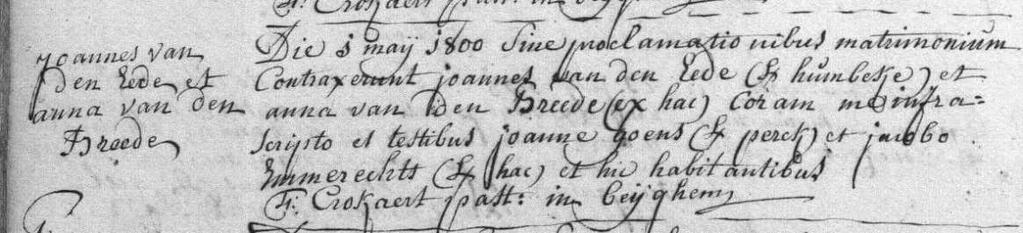 F. Crokaert past: in beijghem
Joannes van
den Eede et
anna van den
Breede
Die 1 maij 1800 sine proclamationibus matrimonium
Contraxerunt joannes van den Eede (ex humbeke) et
anna van den Breede (ex hac) Coram me infra=
scripto et testibus joanne goens (ex perck) et jacobo
Emmerechts (ex hac) et hic habitantibus
F: Crokaert past: in beijghem